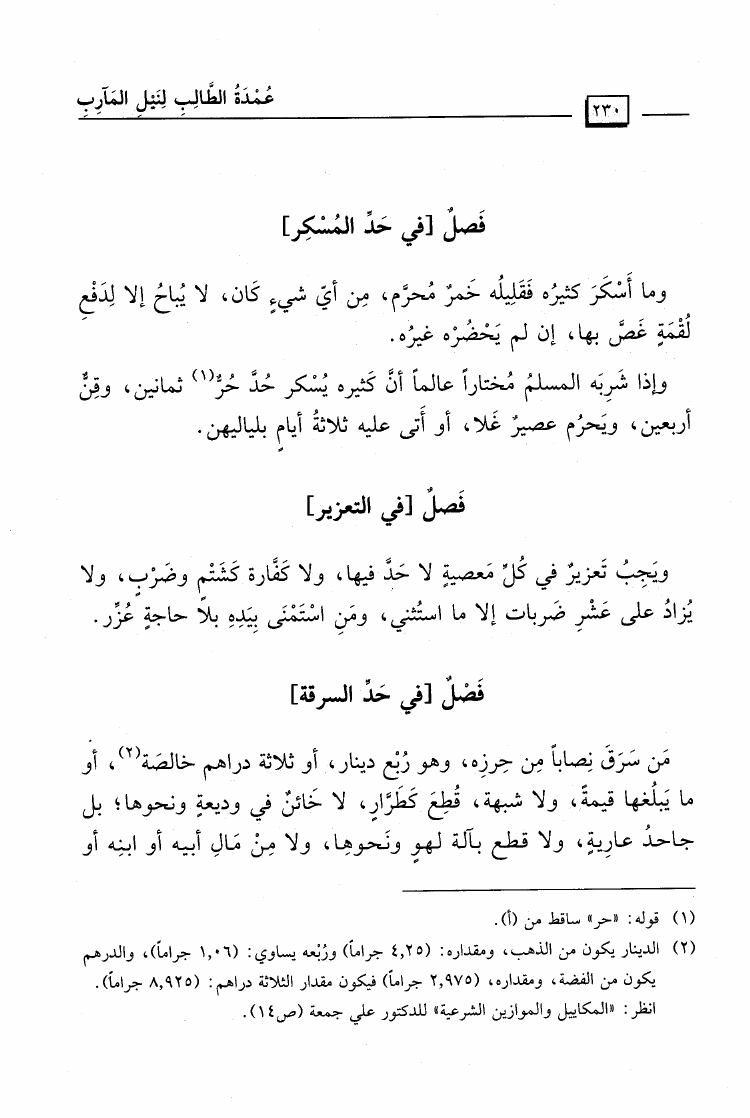 عُمْدَةُ الطَّالِبِ لِنَيْلِ المَآرِبِ
٢٣٠
فَصلٌ [في حَدِّ المُسْكِر]
وما أَسْكَرَ كثيرُه فَقَلِيلُه خَمرٌ مُحرَّم، مِن أيّ شيءٍ كَان، لا يُباحُ إلا لِدَفْعِ
لُقْمَةٍ غَصَّ بها، إن لم يَحْضُرْه غيرُه.
وإذا شَرِبَه المسلمُ مُختاراً عالماً أنَّ كَثيره يُسْكر حُدَّ حُرٌّ(١) ثمانين، وقِنٌّ
أربعين، ويَحرُم عصيرٌ غَلا، أو أَتى عليه ثلاثةُ أيامٍ بلياليهن.
فَصلٌ [في التعزير]
ويَجِبُ تَعزيرٌ في كُلِّ مَعصيةٍ لا حَدَّ فيها، ولا كَفَّارة كَشَتْمٍ وضَرْبٍ، ولا
يُزادُ على عَشْرِ ضَربات إلا ما استُثني، ومَنِ اسْتَمْنَى بِيَدِهِ بلا حاجةٍ عُزِّر.
فَصْلٌ [في حَدِّ السرقة]
مَن سَرَقَ نِصاباً مِن حِرزِه، وهو رُبْع دينار، أو ثلاثة دراهم خالصَة(٢)، أو
ما يَبلُغها قيمةً، ولا شبهة، قُطِعَ كَطَرَّارٍ، لا خَائنٌ في وديعةٍ ونحوها؛ بل
جاحدُ عاريةٍ، ولا قطع بآلة لهوٍ ونَحوِها، ولا مِنْ مَالِ أبيه أو ابنِه أو
(١) قوله: «حر» ساقط من (أ).
(٢) الدينار يكون من الذهب، ومقداره: (٤,٢٥ جراماً) ورُبْعه يساوي: (١,٠٦ جراماً)، والدرهم
يكون من الفضة، ومقداره، (٢,٩٧٥ جراماً) فيكون مقدار الثلاثة دراهم: (٨,٩٢٥ جراماً).
انظر: «المكاييل والموازين الشرعية» للدكتور علي جمعة (ص١٤).